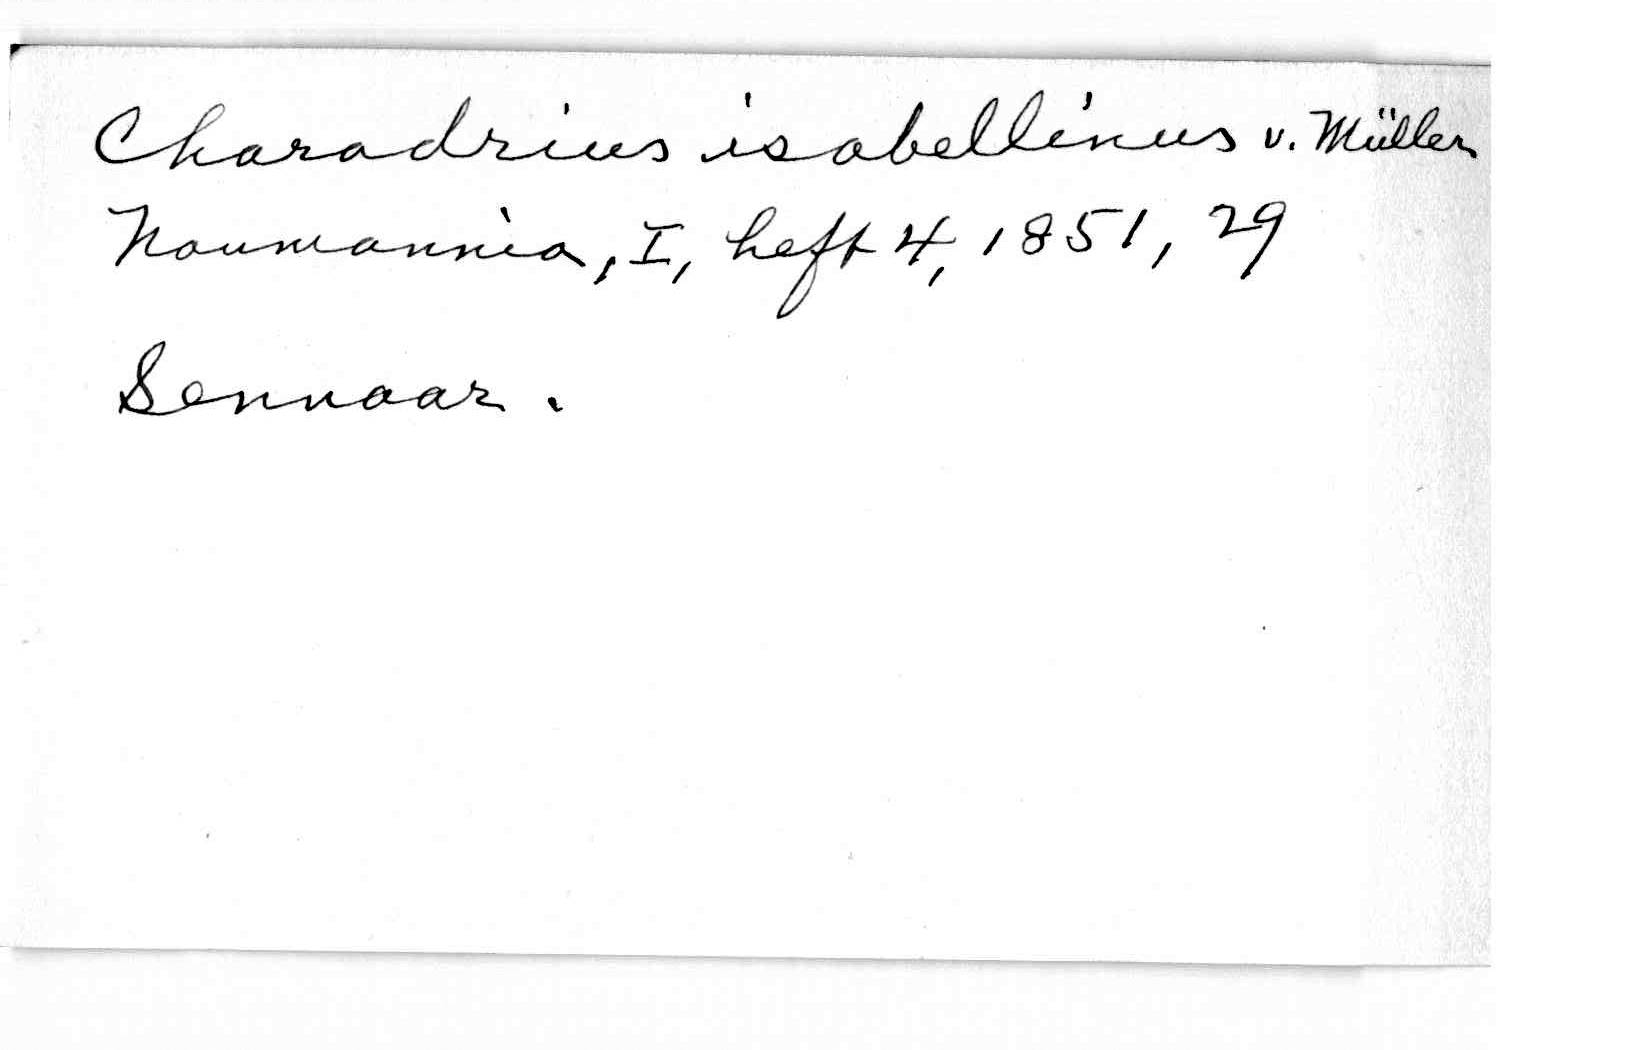 Charadrius isabellinus v. Müller
Naumannia, I, heft 4, 1851, 29
Sennaar.